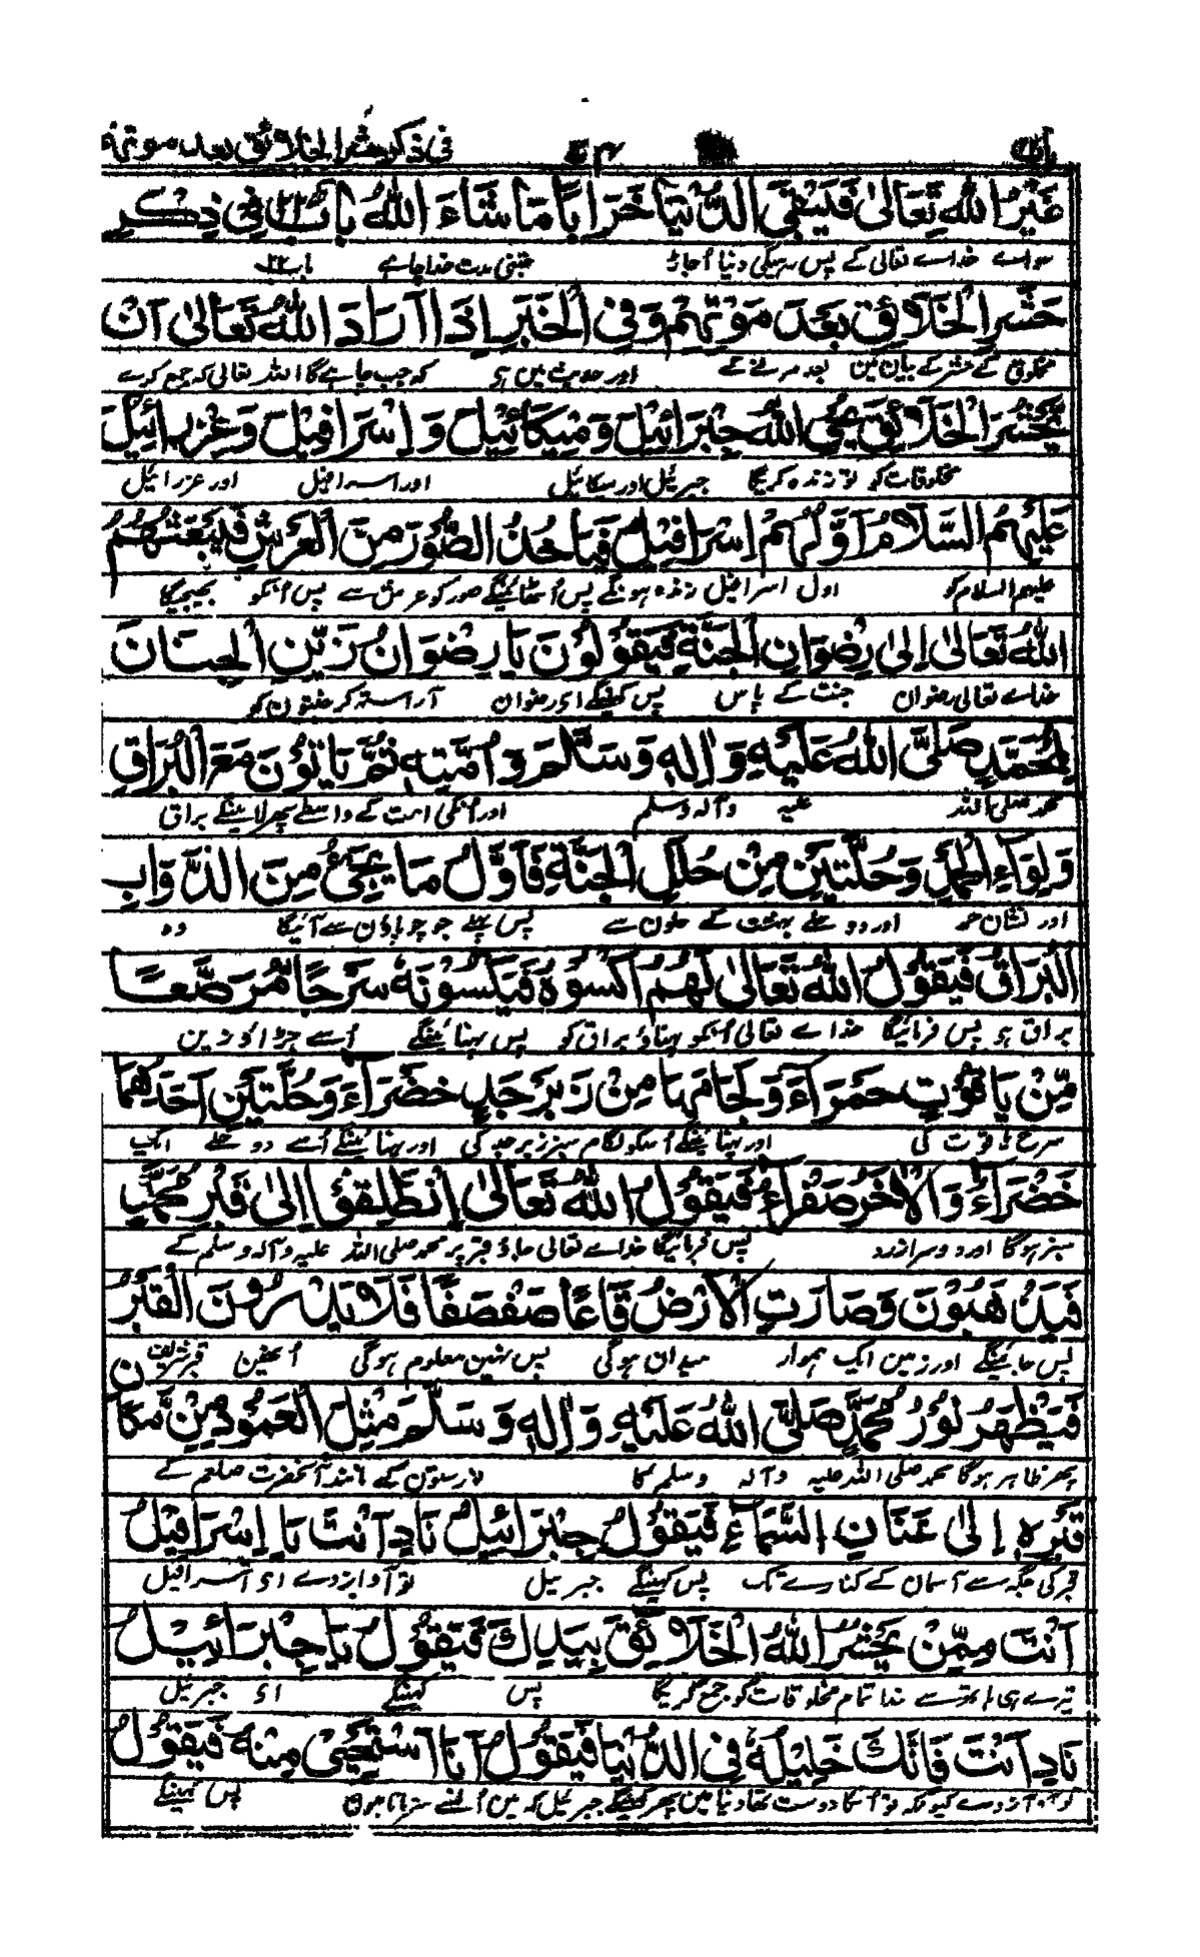 باب ۲۲ ۷۴ فی ذکر حشر الخلائق بعد موتهم
غَيْرُ اللّٰهِ تَعَالٰى فَيَبْقَى الدُّنْيَا خَرَابًا مَا شَاءَ اللّٰهُ بَابٌ ۲۲ فِي ذِكْرِ
سواے خداے تعالی کے پس رہیگی دنیا اُجاڑ جتنی مدت خدا چاہے باب ۲۲
حَشْرِ الْخَلَائِقِ بَعْدَ مَوْتِهِمْ وَفِي الْخَبَرِ إِذَا أَرَادَ اللّٰهُ تَعَالٰى أَنْ
مخلوق کے حشر کے بیان مین بعد مرنے کے اور حدیث مین ہی کہ جب چاہے گا اللہ تعالی کہ جمع کرے
يَحْشُرَ الْخَلَائِقَ يُحْيِ اللّٰهُ جِبْرَائِيْلَ وَمِيْكَائِيْلَ وَإِسْرَافِيْلَ وَعِزْرَائِيْلَ
مخلوقات کو تو زندہ کریگا جبرئیل اور میکائیل اور اسرافیل اور عزرائیل
عَلَيْهِمُ السَّلَامُ أَوَّلُهُمْ إِسْرَافِيْلُ فَيَأْخُذُ الصُّوْرَ مِنَ الْعَرْشِ فَيَبْعَثُهُمُ
علیہم السلام کو اول اسرافیل زندہ ہونگے پس اُٹھائینگے صور کو عرش سے پس اُنکو بھیجیگا
اللّٰهُ تَعَالٰى إِلٰى رِضْوَانِ الْجَنَّةِ فَيَقُوْلُوْنَ يَا رِضْوَانُ زَيِّنِ الْجِنَانَ
خداے تعالی رضوان جنت کے پاس پس کہینگے اے رضوان آراستہ کر جنتون کو
لِمُحَمَّدٍ صَلَّى اللّٰهُ عَلَيْهِ وَاٰلِهِ وَسَلَّمَ وَ أُمَّتِهِ ثُمَّ يَأْتُوْنَ مَعَ الْبُرَاقِ
محمد صلی اللہ علیہ وآلہ وسلم اور اُنکی امت کے واسطے پھر لائینگے براق
وَلِوَاءِ الْحَمْدِ وَحُلَّتَيْنِ مِنْ حُلَلِ الْجَنَّةِ فَأَوَّلُ مَا يَجِيْءُ مِنَ الدَّوَابِ
اور نشان حمد اور دو حلے بہشت کے حلون سے پس پہلے جو چوپاؤن سے آئیگا وہ
الْبُرَاقُ فَيَقُوْلُ اللّٰهُ تَعَالٰى لَهُمُ اكْسُوْهُ فَيَكْسُوْنَهُ سَرْجًا مُرَصَّعًا
براق ہو پس فرمائیگا خداے تعالی اُنکو پہناؤ براق کو پس پہنائینگے اُسے جڑاؤ زین
مِّنْ يَاقُوْتٍ حَمْرَاءَ وَلِجَامَهَا مِنْ زَبَرْجَدٍ خَضْرَاءَ وَحُلَّتَيْنِ أَحَدُهُمَا
سرخ یاقوت کی اور پہنائینگے اُسکو لگام سبز زبرجد کی اور پہنائینگے اُسے دو حلے ایک
خَضْرَاءُ وَالْاٰخَرُ صَفْرَاءُ فَيَقُوْلُ اللّٰهُ تَعَالٰى انْطَلِقُوْا إِلٰى قَبْرِ مُحَمَّدٍ
سبز ہوگا اور دوسرا زرد پس فرمائیگا خداے تعالی جاؤ قبر پر محمد صلی اللہ علیہ وآلہ وسلم کے
فَيَذْهَبُوْنَ وَصَارَتِ الْأَرْضُ قَاعًا صَفْصَفًا فَلَا يَدْرُوْنَ الْقَبْرَ
پس جائینگے اور زمین ایک ہموار میدان ہوگی پس نہین معلوم ہوگی اُنھین قبر شریف
فَيَظْهَرُ نُوْرُ مُحَمَّدٍ صَلَّى اللّٰهُ عَلَيْهِ وَاٰلِهِ وَسَلَّمَ مِثْلَ الْعَمُوْدِ مِنْ مَّكَانِ
پھر ظاہر ہوگا محمد صلی اللہ علیہ وآلہ وسلم کا نور ستون کے مانند آنحضرت صلعم کے
قَبْرِهِ إِلٰى عَنَانِ السَّمَاءِ فَيَقُوْلُ جِبْرَائِيْلُ نَادِ أَنْتَ يَا إِسْرَافِيْلُ
قبر کی جگہ سے آسمان کے کنارے تک پس کہینگے جبرئیل تو آواز دے اے اسرافیل
أَنْتَ مِمَّنْ يَحْشُرُ اللّٰهُ الْخَلَائِقَ بِيَدِكَ فَيَقُوْلُ يَا جِبْرَائِيْلُ
تیرے ہی ہاتھ سے خدا تمام مخلوقات کو جمع کریگا پس کہینگے اے جبرئیل
نَادِ أَنْتَ فَإِنَّكَ خَلِيْلُهُ فِي الدُّنْيَا فَيَقُوْلُ أَنَا أَسْتَحْيِيْ مِنْهُ فَيَقُوْلُ
آواز دے کیونکہ تو اُنکا دوست تھا دنیا مین پھر کہینگے جبرئیل کہ مین اُنسے شرماتا ہون پس کہینگے